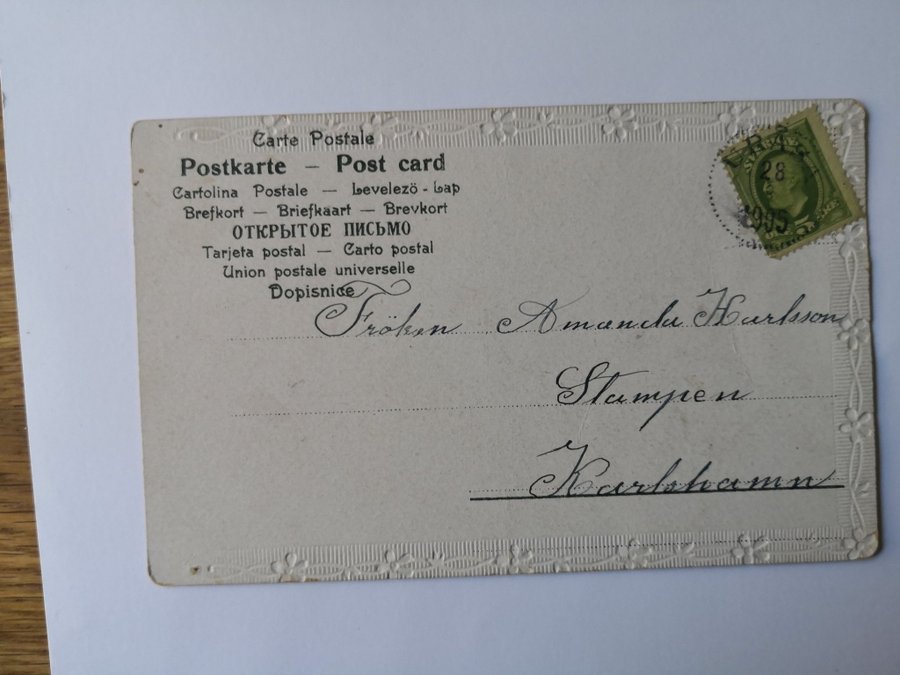 Carte Postale
Postkarte – Post card
Cartolina Postale – Levelezö-Lap
Brefkort – Briefkaart – Brevkort
ОТКРЫТОЕ ПИСЬМО
Tarjeta postal – Carto postal
Union postale universelle
Dopisnice
28
1905
Fröken Amanda Karlsson
Stampen
Karlshamn